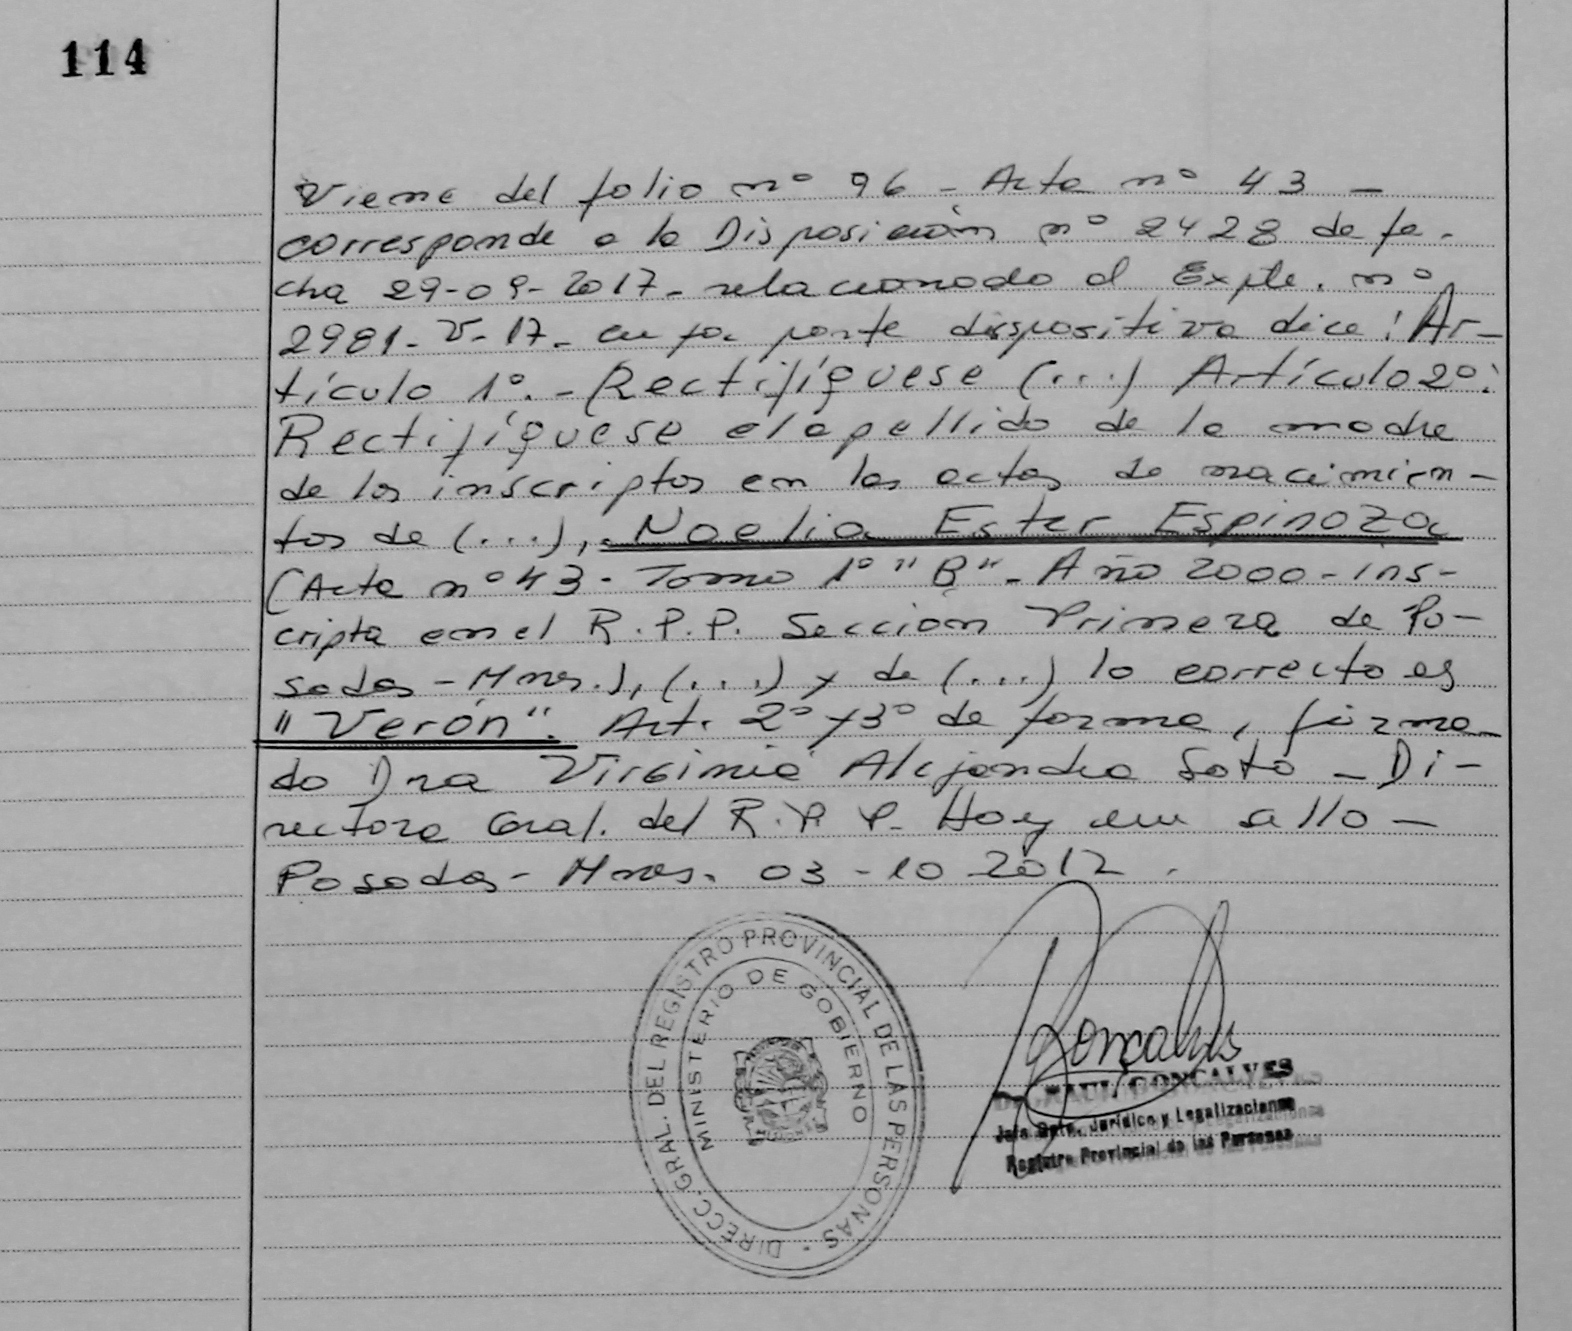 114
Viene del folio nº 96 - Acta nº 43 -
corresponde a la Disposición nº 2428 de fe-
cha 29-09-2017- relacionado al Expte. nº
2981-V-17- cuya parte dispositiva dice: Ar-
tículo 1º.- Rectifíquese (...) Artículo 2º:
Rectifíquese el apellido de la madre
de los inscriptos en las actas de nacimien-
tos de (...), Noelia Ester Espinoza
(Acta nº 43- Tomo 1º "B"- Año 2000- ins-
cripta en el R.P.P. Sección Primera de Po-
sadas - Mnes.), (...) y de (...) lo correcto es
"Verón". Art. 2º y 3º de forma, firma-
do Dra Virginia Alejandra Soto - Di-
rectora Gral. del R.P.P. Hoy en sello -
Posadas - Mnes. 03-10 2017.
DIRECC. GRAL. DEL REGISTRO PROVINCIAL DE LAS PERSONAS -
MINISTERIO DE GOBIERNO
Gonçalves
RAUL GONCALVES
Jefe Dpto. Jurídico y Legalizaciones
Registro Provincial de las Personas